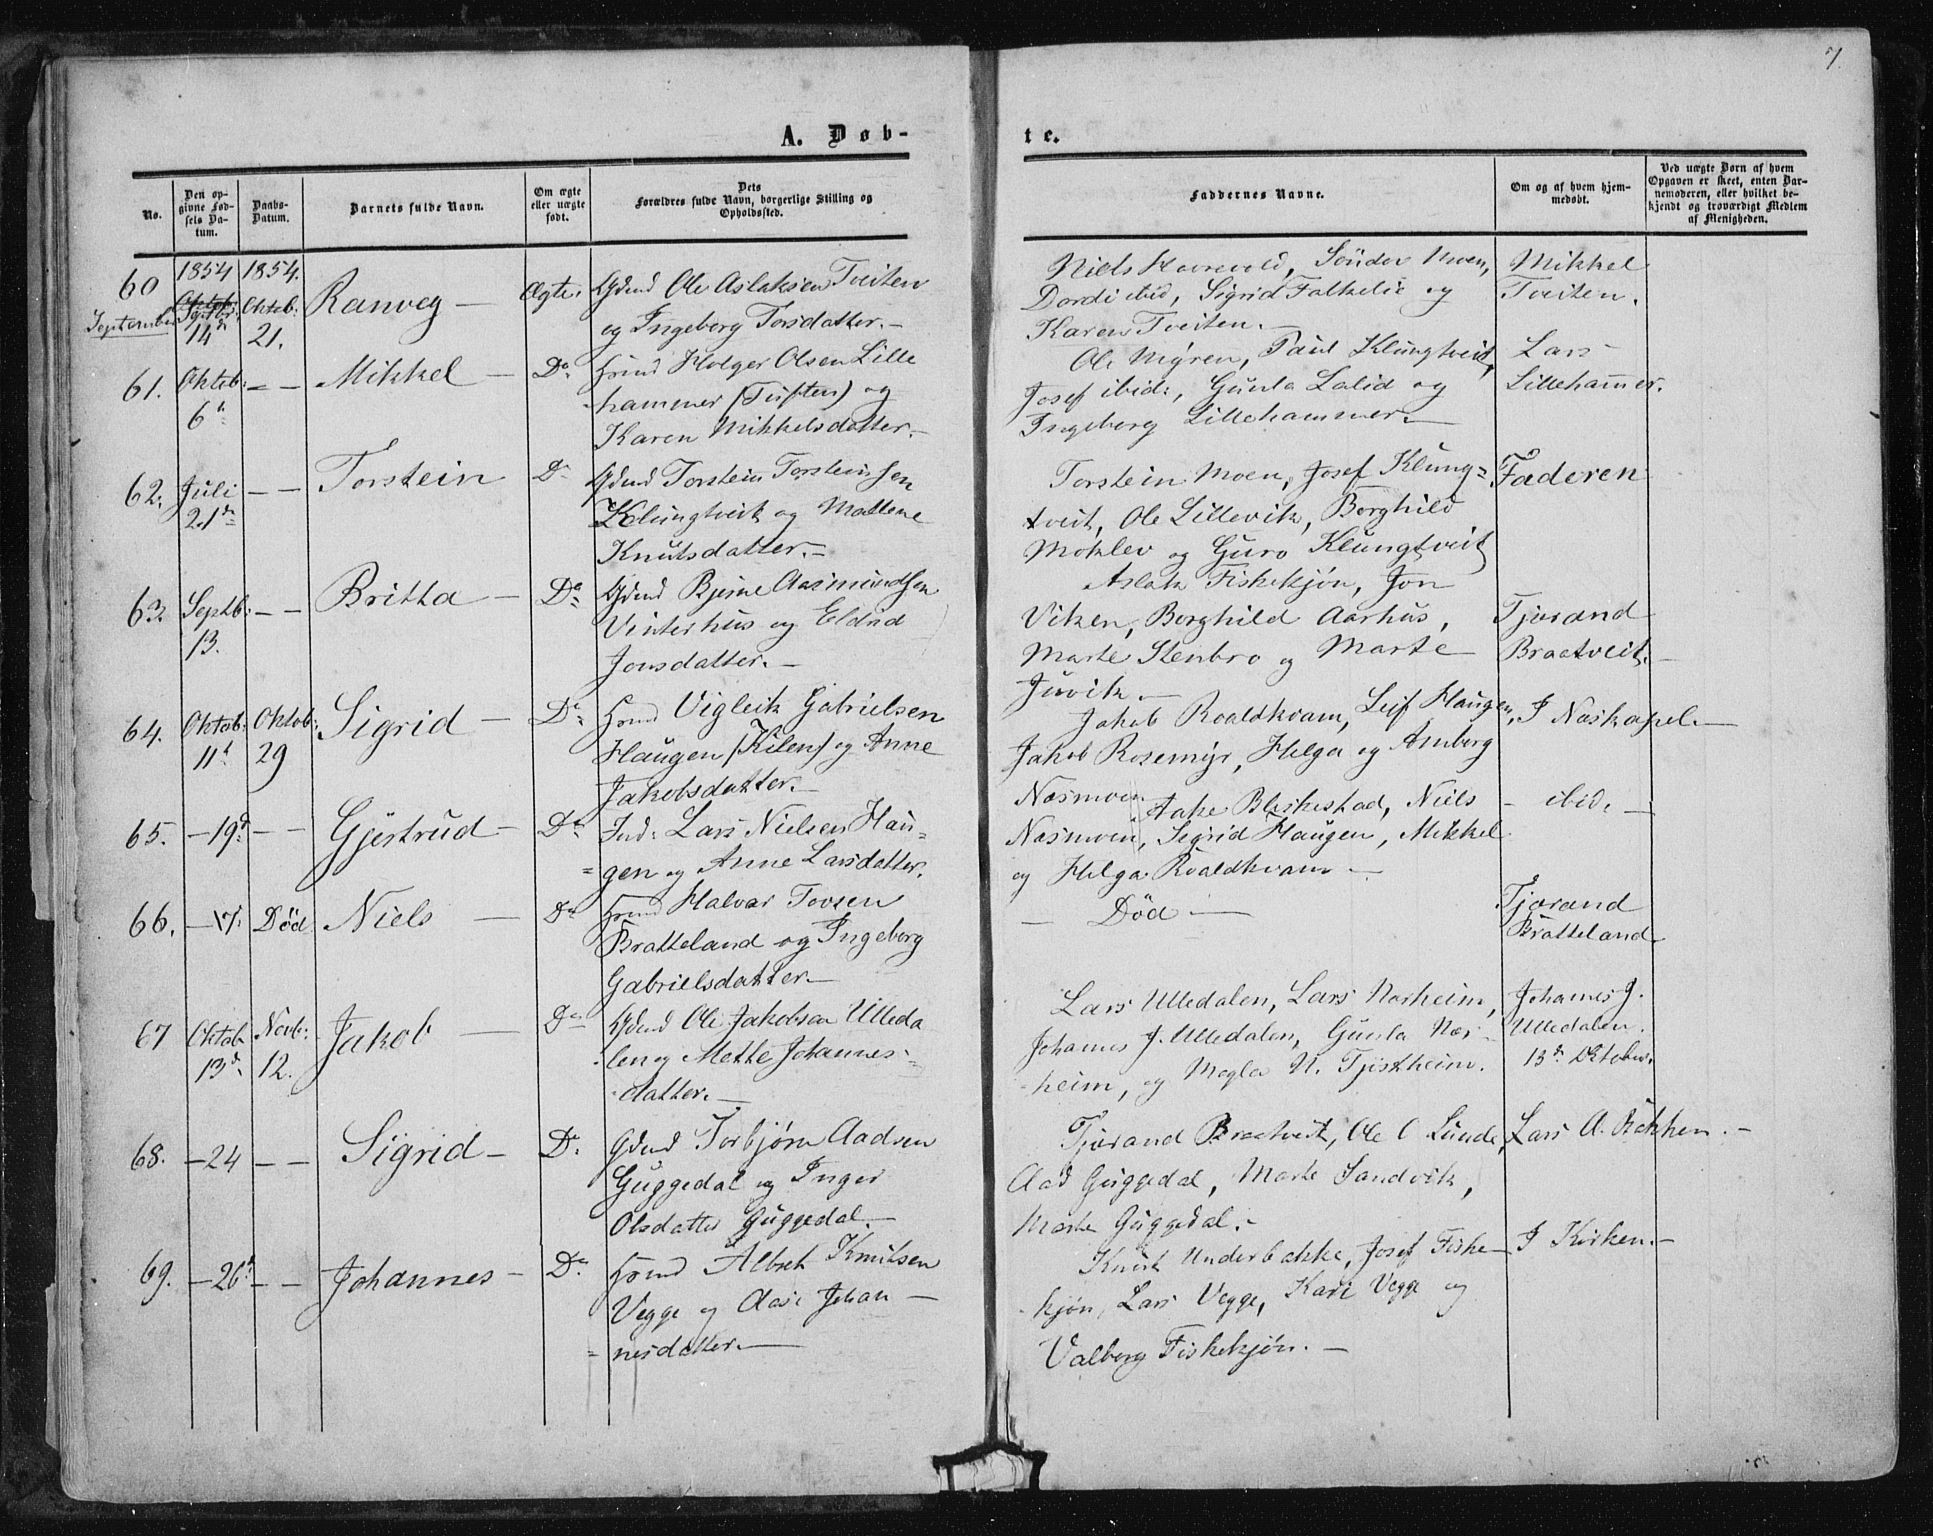 7.
A. Døb-
te.
No.
Den opgivne Fødsels Datum.
Daabs-Datum.
Barnets fulde Navn.
Om ægte eller uægte født.
Dets Forældres fulde Navn, borgerlige Stilling og Opholdssted.
Faddernes Navne.
Om og af hvem hjemmedøbt.
Ved uægte Børn af hvem Opgaven er skeet, enten Barnemoderen, eller hvilket bekjendt og troværdigt Medlem af Menigheden.
60 1854 1854.
September 14d Oktob: 21. Ranveg — Ægte. Gdmd Ole Aslaksen Tveiten
og Ingeborg Torsdatter.—
Niels Sønder Moen, Mikkel
Dordi ibid, Sigrid Falkelie og Tveiten.
Karen Tveiten.—
61. Oktob: 6d — — Mikkel — Do Hmd Holger Olsen Lille
hammer (Tuften) og
Karen Mikkelsdatter.—
Ole Myren, Paul Klungtveit, Lars
Josef ibid:, Gunla Lalid og Lillehammer.
Ingeborg Lillehammer.—
62. Juli 21de — — Torstein Do Gdmd Torstein Torsteinsen
Klungtveit og Mallene
Knutsdatter.—
Torstein Moen, Josef Klung= Faderen
tveit, Ole Lillevik, Borghild
Moklev og Guro Klungtveit
63. Septb: 13. — — Britha — Do Gdmd Bjerne Aasmundsen
Vinterhus og Eldrid
Jonsdatter.—
Aslak Fiskekjøn, Jon
Viken, Borghild Aarhus, Tjørand
Marte Stenbro og Marte Braatveit.—
Juvik.—
64. Oktob: 11d Oktob: 29 Sigrid — Do Hmd Vigleik Gabrielsen
Haugen (Kilen) og Anne
Jakobsdatter.—
Jakob Roaldkvam, Leif Haugen, I Næskapel.—
Jakob Rosemyr, Helga og Amberg
Næsmoen
65. — 19d — — Gjertrud — Do Ind: Lars Nielsen Hau=
=gen og Anne Larsdatter.
Aake Bleskestad, Niels — ibid. —
Næsmoen, Sigrid Haugen, Mikkel
og Helga Roaldkvam —
66. — 17. Død Niels — Do Hmd Halvar Tovsen
Bratteland og Ingeborg
Gabrielsdatter.—
— Død — Tjørand
Bratteland.
67 Oktob 13d Novb: 12. Jakob — Do Gdmd Ole Jakobsen Ulleda
len og Mette Johannes-
datter.—
Lars Ulledalen, Lars Nærheim, Johanes J.
Johanes J. Ulledalen, Gunla Nær- Ulledalen.
heim, og Magla N. Tjøstheim. 13d Oktober.
68. — 24 — — Sigrid — Do Gdmd Torbjørn Aadsen
Guggedal og Inger
Olsdatter Guggedal.—
Tjørand Braatveit, Ole O Lunde, Lars A. Bakken.—
Aad Guggedal, Marte Sandvik,
Marte Guggedal.—
69. — 26d — — Johannes — Do Hmd Albret Knutsen
Vegge og Aase Johan —
=nesdatter.—
Knut Underbakke, Josef Fiske — I Kirken.—
kjøn, Lars Vegge, Kari Vegge og
Valborg Fiskekjøn.—